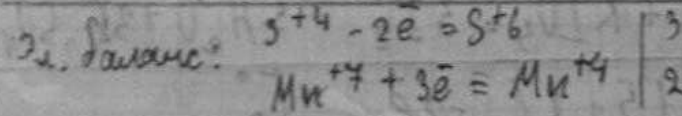 Эл. баланс: S⁺⁴ - 2ē = S⁺⁶ | 3
Mn⁺⁷ + 3ē = Mn⁺⁴ | 2